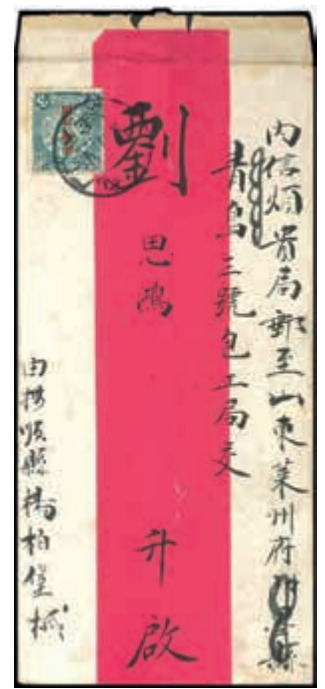 內信煩貴局郵至山東萊州府
青島三號包工局交
劉思鴻 升啟
由撫順縣楊柏堡